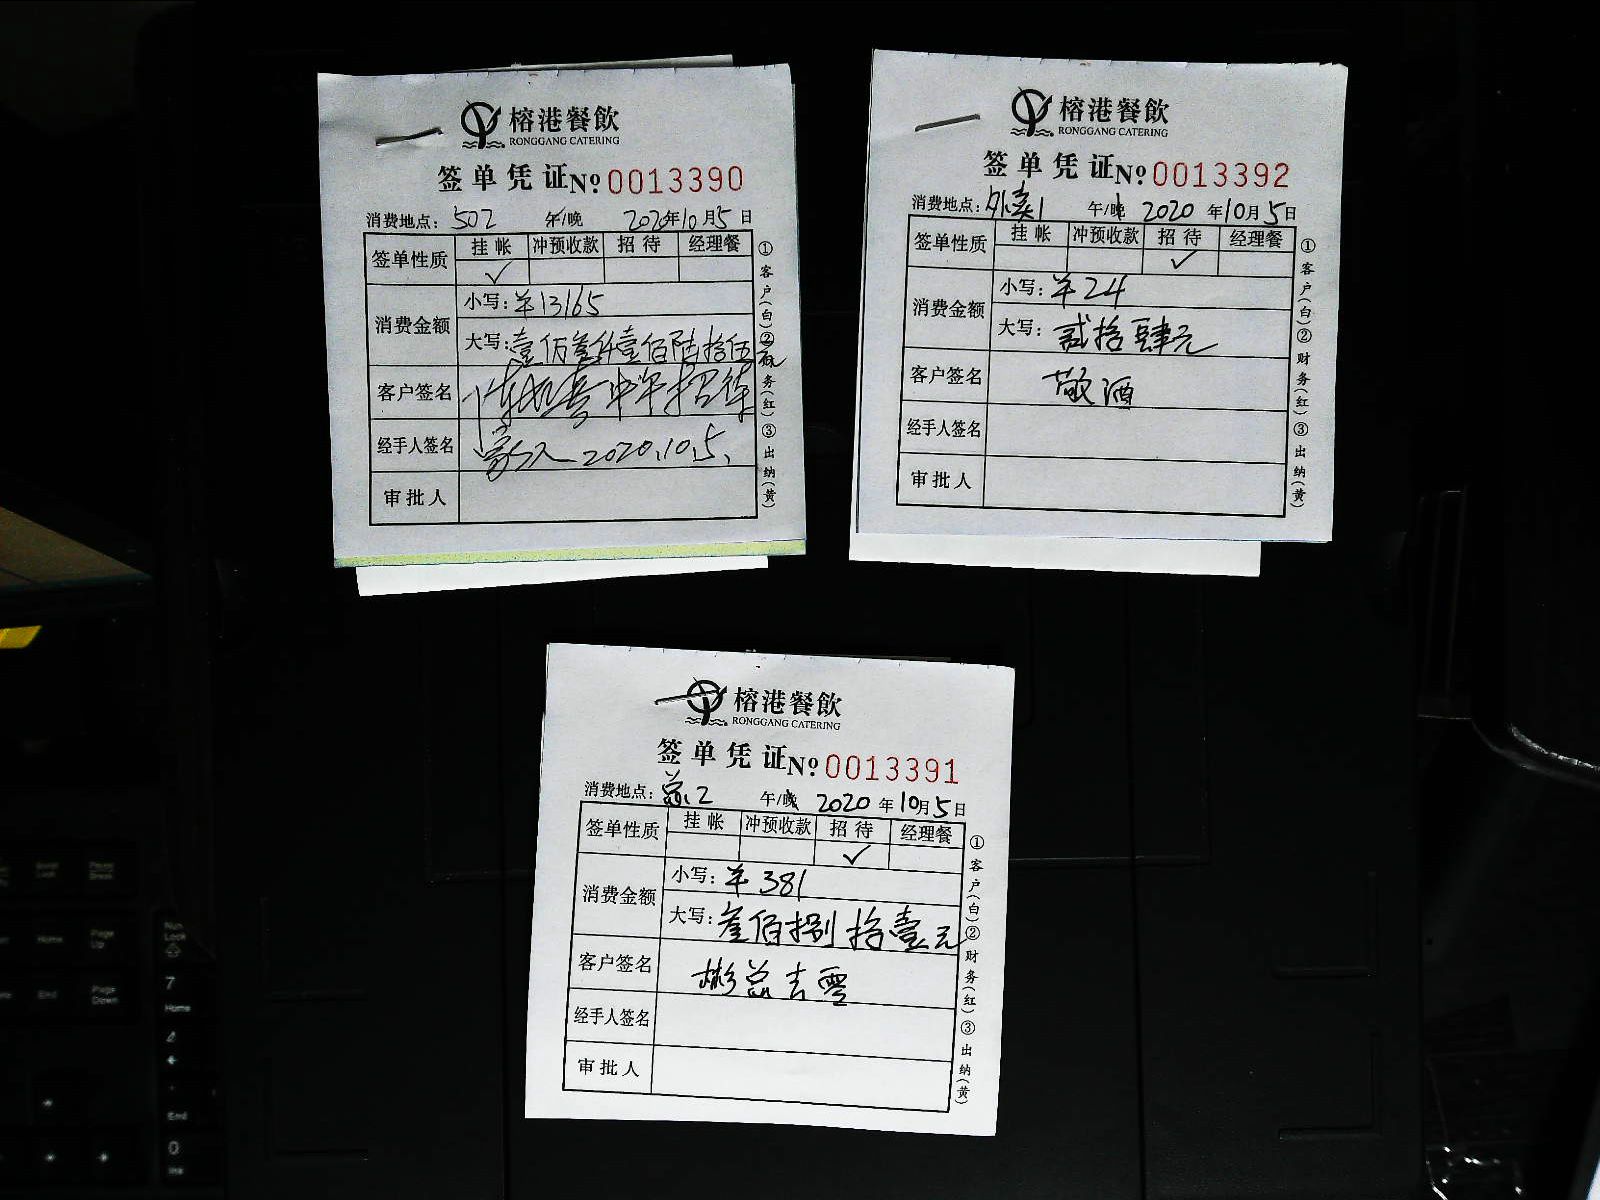 榕港餐飲
RONGGANG CATERING
签单凭证№0013390
消费地点：502 午/晚 2020年10月5日
签单性质 挂帐 冲预收款 招待 经理餐
✓
消费金额 小写：￥13165
大写：壹万叁仟壹佰陆拾伍元
客户签名 中午招待
经手人签名 2020.10.5.
审批人
①客户(白)②财务(红)③出纳(黄)
榕港餐飲
RONGGANG CATERING
签单凭证№0013392
消费地点：外卖1 午/晚 2020年10月5日
签单性质 挂帐 冲预收款 招待 经理餐
✓
消费金额 小写：￥24
大写：贰拾肆元
客户签名 敬酒
经手人签名
审批人
①客户(白)②财务(红)③出纳(黄)
榕港餐飲
RONGGANG CATERING
签单凭证№0013391
消费地点：总2 午/晚 2020年10月5日
签单性质 挂帐 冲预收款 招待 经理餐
✓
消费金额 小写：￥381
大写：叁佰捌拾壹元
客户签名 彬总去零
经手人签名
审批人
①客户(白)②财务(红)③出纳(黄)
Page Up
Home
End
Page Down
Num Lock
7
Home
4
End
0
Ins